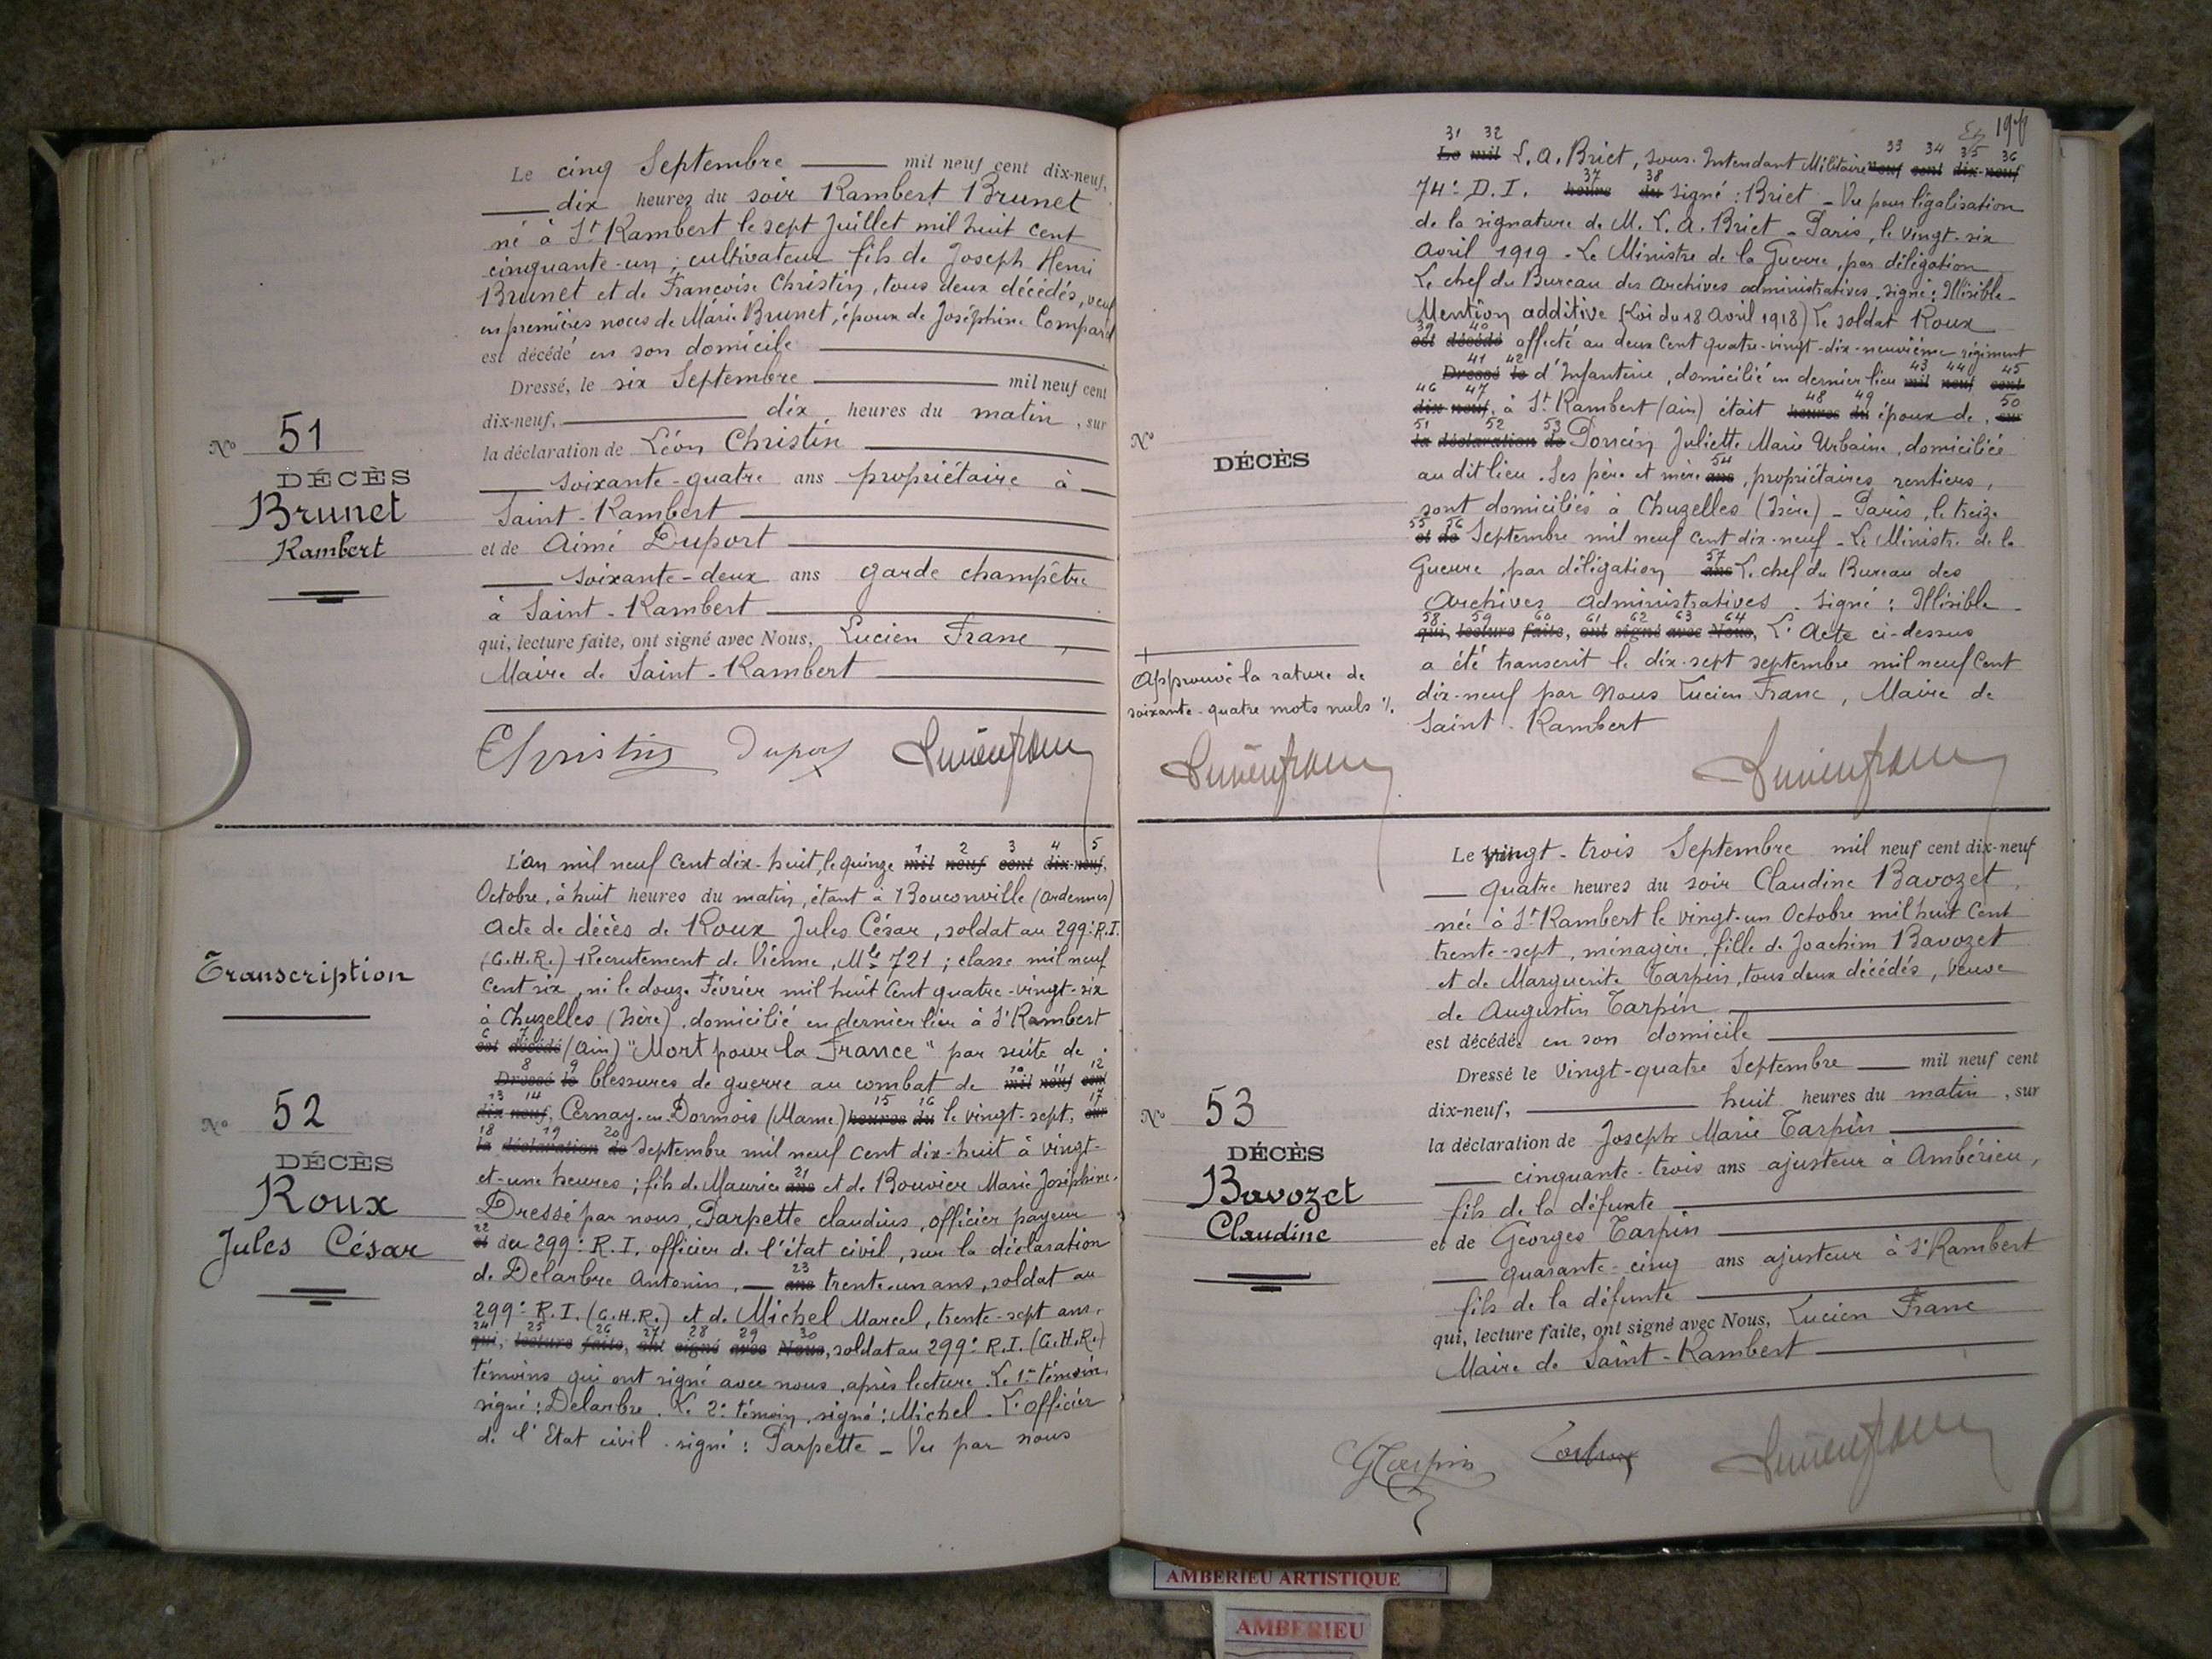 Le cinq Septembre mil neuf cent dix-neuf,
dix heures du soir Rambert Brunet
né à St Rambert le sept Juillet mil huit cent
cinquante-un, cultivateur fils de Joseph Henri
Brunet et de Françoise Christin, tous deux décédés, veuf
en premières noces de Marie Brunet, époux de Joséphine Comparet
est décédé en son domicile
Dressé, le six Septembre mil neuf cent
dix-neuf, dix heures du matin, sur
la déclaration de Léon Christin
soixante-quatre ans propriétaire à
Saint-Rambert
et de Aimé Duport
soixante-deux ans garde champêtre
à Saint-Rambert
qui, lecture faite, ont signé avec Nous, Lucien Franc,
Maire de Saint-Rambert
Nº 51
DÉCÈS
Brunet
Rambert
Christin Duport Lucien Franc
Transcription
Nº 52
DÉCÈS
Roux
Jules César
1 2 3 4 5
L'an mil neuf cent dix-huit, le quinze mil neuf cent dix-neuf,
Octobre, à huit heures du matin, étant à Bouconville (Ardennes)
Acte de décès de Roux Jules César, soldat au 299e R.I.
(C.H.R.) Recrutement de Vienne, Mle 721; classe mil neuf
cent six, né le douze Février mil huit cent quatre-vingt-six
à Chuzelles (Isère), domicilié en dernier lieu à St Rambert
6 7
est décédé (Ain) "Mort pour la France" par suite de
8 9 10 11 12
Dressé le blessures de guerre au combat de mil neuf cent
13 14 15 16 17
dix-neuf, Cernay-en-Dormois (Marne) heures du le vingt-sept, sur
18 19 20
la déclaration de Septembre mil neuf cent dix-huit à vingt-
21
et-une heures; fils de Maurice ans et de Bouvier Marie Joséphine.
Dressé par nous, Parpette Claudius, officier payeur
22
et du 299e R.I. officier de l'état civil, sur la déclaration
23
de Delarbre Antonin, ans trente-un ans, soldat au
299e R.I. (C.H.R.) et de Michel Marcel, trente-sept ans,
24 25 26 27 28 29 30
qui, lecture faite, ont signé avec Nous, soldat au 299e R.I. (C.H.R.)
témoins qui ont signé avec nous, après lecture. Le 1er témoin
signé: Delarbre. Le 2e témoin, signé: Michel. L'officier
de l'Etat civil signé: Parpette - Vu par nous
197
31 32 33 34 35 36
Le mil L.A. Briet, sous-Intendant Militaire neuf cent dix-neuf
37 38
74e D.I. heures du signé: Briet - Vu pour légalisation
de la signature de M. L.A. Briet - Paris, le vingt-six
Avril 1919 - Le Ministre de la Guerre, par délégation
Le chef du Bureau des Archives administratives, signé: Illisible -
Mention additive (Loi du 18 Avril 1918) Le soldat Roux
39 40
est décédé affecté au deux cent quatre-vingt-dix-neuvième régiment
41 42 43 44 45
Dressé le d'Infanterie, domicilié en dernier lieu mil neuf cent
46 47 48 49 50
dix-neuf, à St Rambert (Ain) était heures du époux de, sur
51 52 53
la déclaration de Poncin Juliette Marie Urbaine, domiciliée
54
au dit lieu. Ses père et mère ans, propriétaires rentiers,
sont domiciliés à Chuzelles (Isère) - Paris, le treize
55 56
et de Septembre mil neuf cent dix-neuf - Le Ministre de la
57
Guerre par délégation ans Le chef du Bureau des
Archives Administratives. Signé: Illisible -
58 59 60 61 62 63 64
qui, lecture faite, ont signé avec Nous, L'Acte ci-dessus
a été transcrit le dix-sept septembre mil neuf cent
dix-neuf par Nous Lucien Franc, Maire de
Saint-Rambert
Nº
DÉCÈS
Approuvé la rature de
soixante-quatre mots nuls
Lucien Franc
Lucien Franc
Nº 53
DÉCÈS
Bavozet
Claudine
Le vingt-trois Septembre mil neuf cent dix-neuf
quatre heures du soir Claudine Bavozet,
née à St Rambert le vingt-un Octobre mil huit cent
trente-sept, ménagère, fille de Joachim Bavozet
et de Marguerite Tarpin, tous deux décédés, veuve
de Augustin Tarpin
est décédée en son domicile
Dressé le vingt-quatre Septembre mil neuf cent
dix-neuf, huit heures du matin, sur
la déclaration de Joseph Marie Tarpin
cinquante-trois ans ajusteur à Ambérieu,
fils de la défunte
et de Georges Tarpin
quarante-cinq ans ajusteur à St Rambert
fils de la défunte
qui, lecture faite, ont signé avec Nous, Lucien Franc
Maire de Saint-Rambert
GTarpin Lucien Franc
AMBERIEU ARTISTIQUE
AMBERIEU